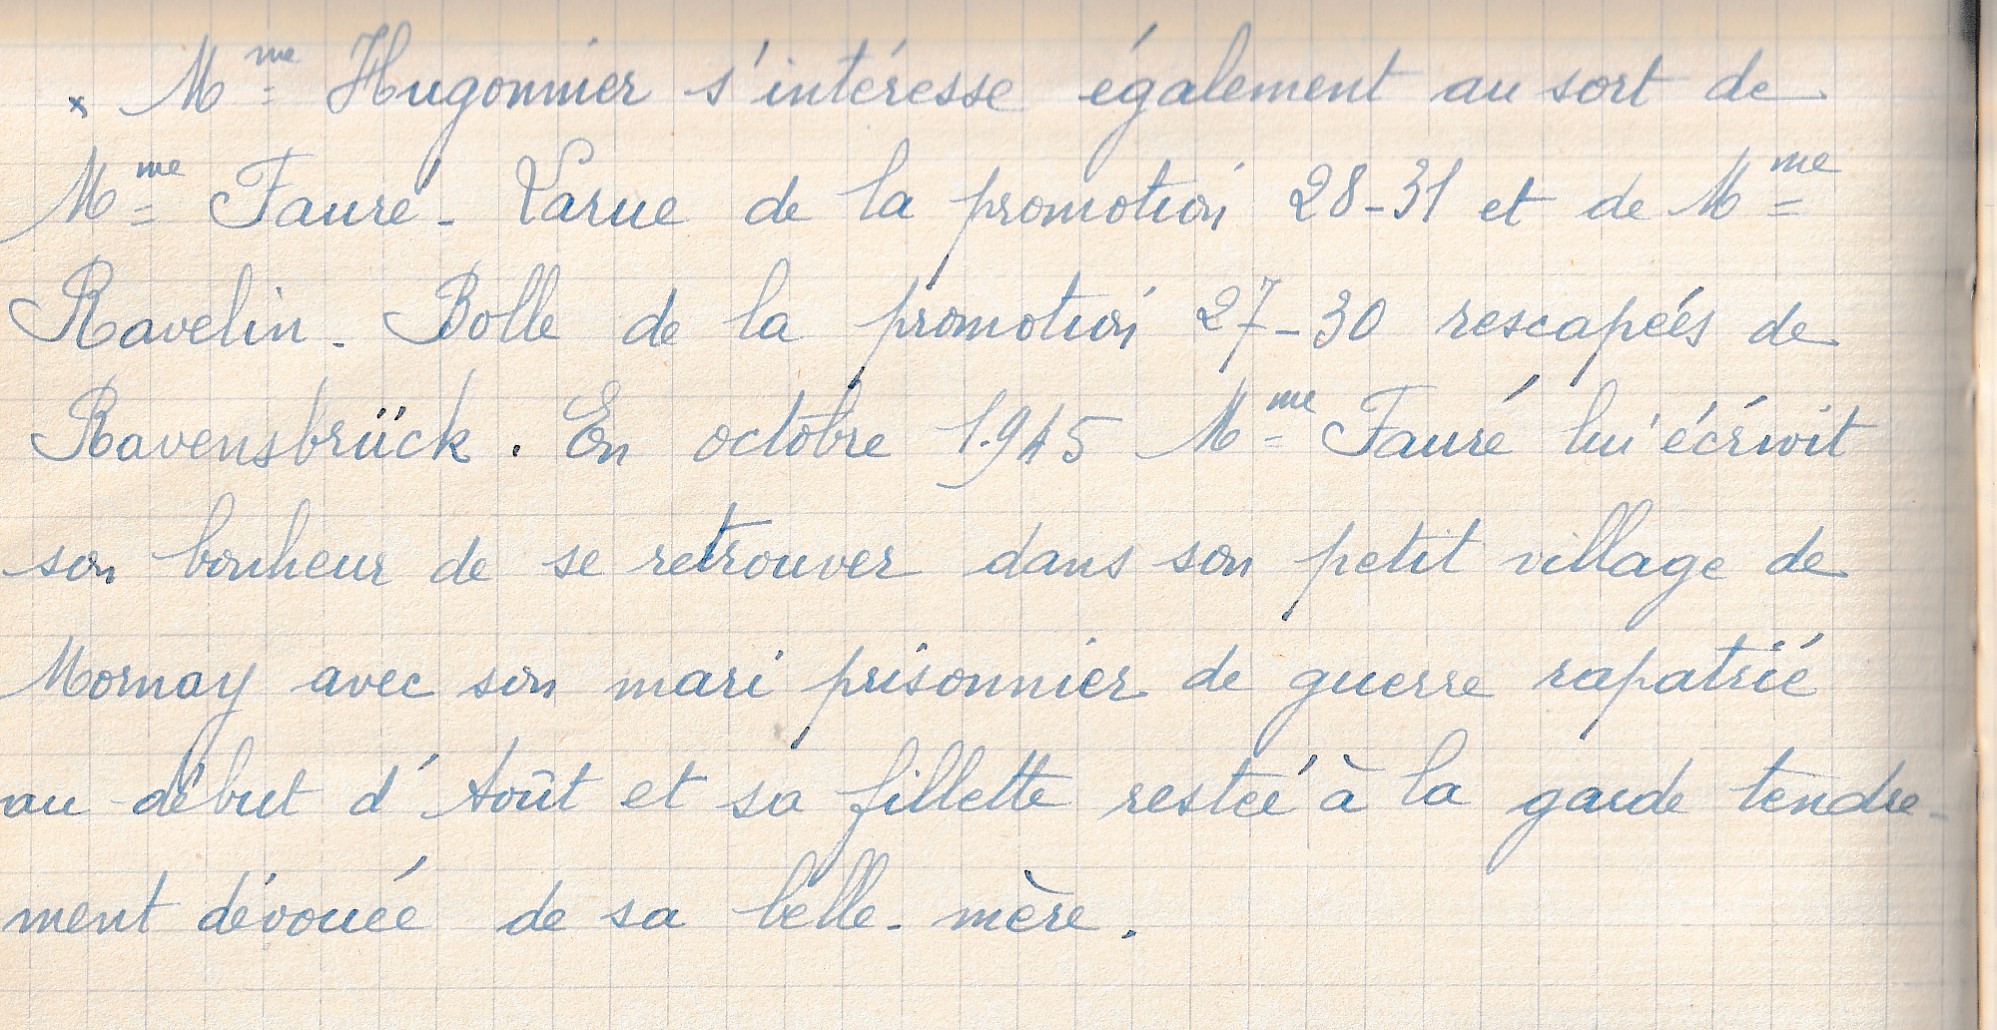 x Mme Hugonnier s'intéresse également au sort de
Mme Fauré-Larue de la promotion 28-31 et de Mme
Ravelin-Bolle de la promotion 27-30 rescapées de
Ravensbrück. En octobre 1945 Mme Fauré lui écrivit
son bonheur de se retrouver dans son petit village de
Mornay avec son mari prisonnier de guerre rapatrié
au début d'Août et sa fillette restée à la garde tendre-
ment dévouée de sa belle-mère.